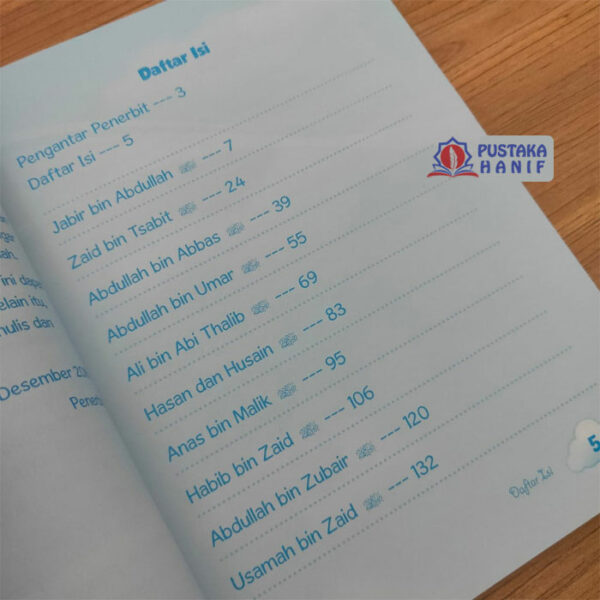 Daftar Isi
Pengantar Penerbit --- 3
Daftar Isi --- 5
Jabir bin Abdullah --- 7
Zaid bin Tsabit --- 24
Abdullah bin Abbas --- 39
Abdullah bin Umar --- 55
Ali bin Abi Thalib --- 69
Hasan dan Husain --- 83
Anas bin Malik --- 95
Habib bin Zaid --- 106
Abdullah bin Zubair --- 120
Usamah bin Zaid --- 132
Daftar Isi
5
PUSTAKA
HANIF
ini dapa
elain itu,
nulis dan
Desember 20
Pener